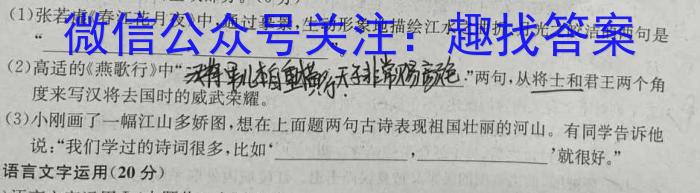 (1)张若虚《春江花月夜》中,通过摹景,生动形象地描绘江水
两句是
微信公众号关注:趣找答案
“
(2)高适的《燕歌行》中“
男儿本自重横行,天子非常赐颜色
”两句,从将士和君王两个角
度来写汉将去国时的威武荣耀。
(3)小刚画了一幅江山多娇图,想在上面题两句古诗表现祖国壮丽的河山。有同学告诉他
说:“我们学过的诗词很多,比如‘____________,____________’就很好。”
语言文字运用(20分)